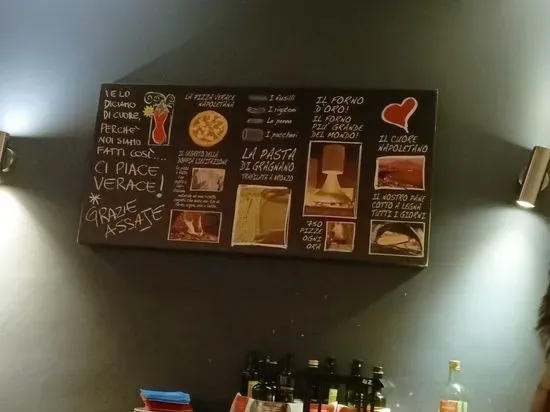 I E LO
DICIAMO
DI CUORE,
PERCHÉ
NOI SIAMO
FATTI COSÌ...
CI PIACE
VERACE!
GRAZIE
ASSAJE
LA PIZZA VERACE
NAPOLETANA
IL SEGRETO DELLA
DOPPIA LIEVITAZIONE
I fusilli
I rigatoni
Le penne
I paccheri
LA PASTA
DI GRAGNANO
TRAFILATA A BRONZO
IL FORNO
D'ORO!
IL FORNO
PIÙ GRANDE
DEL MONDO!
750
PIZZE
OGNI
ORA
IL CUORE
NAPOLETANO
IL NOSTRO PANE
COTTO A LEGNA
TUTTI I GIORNI